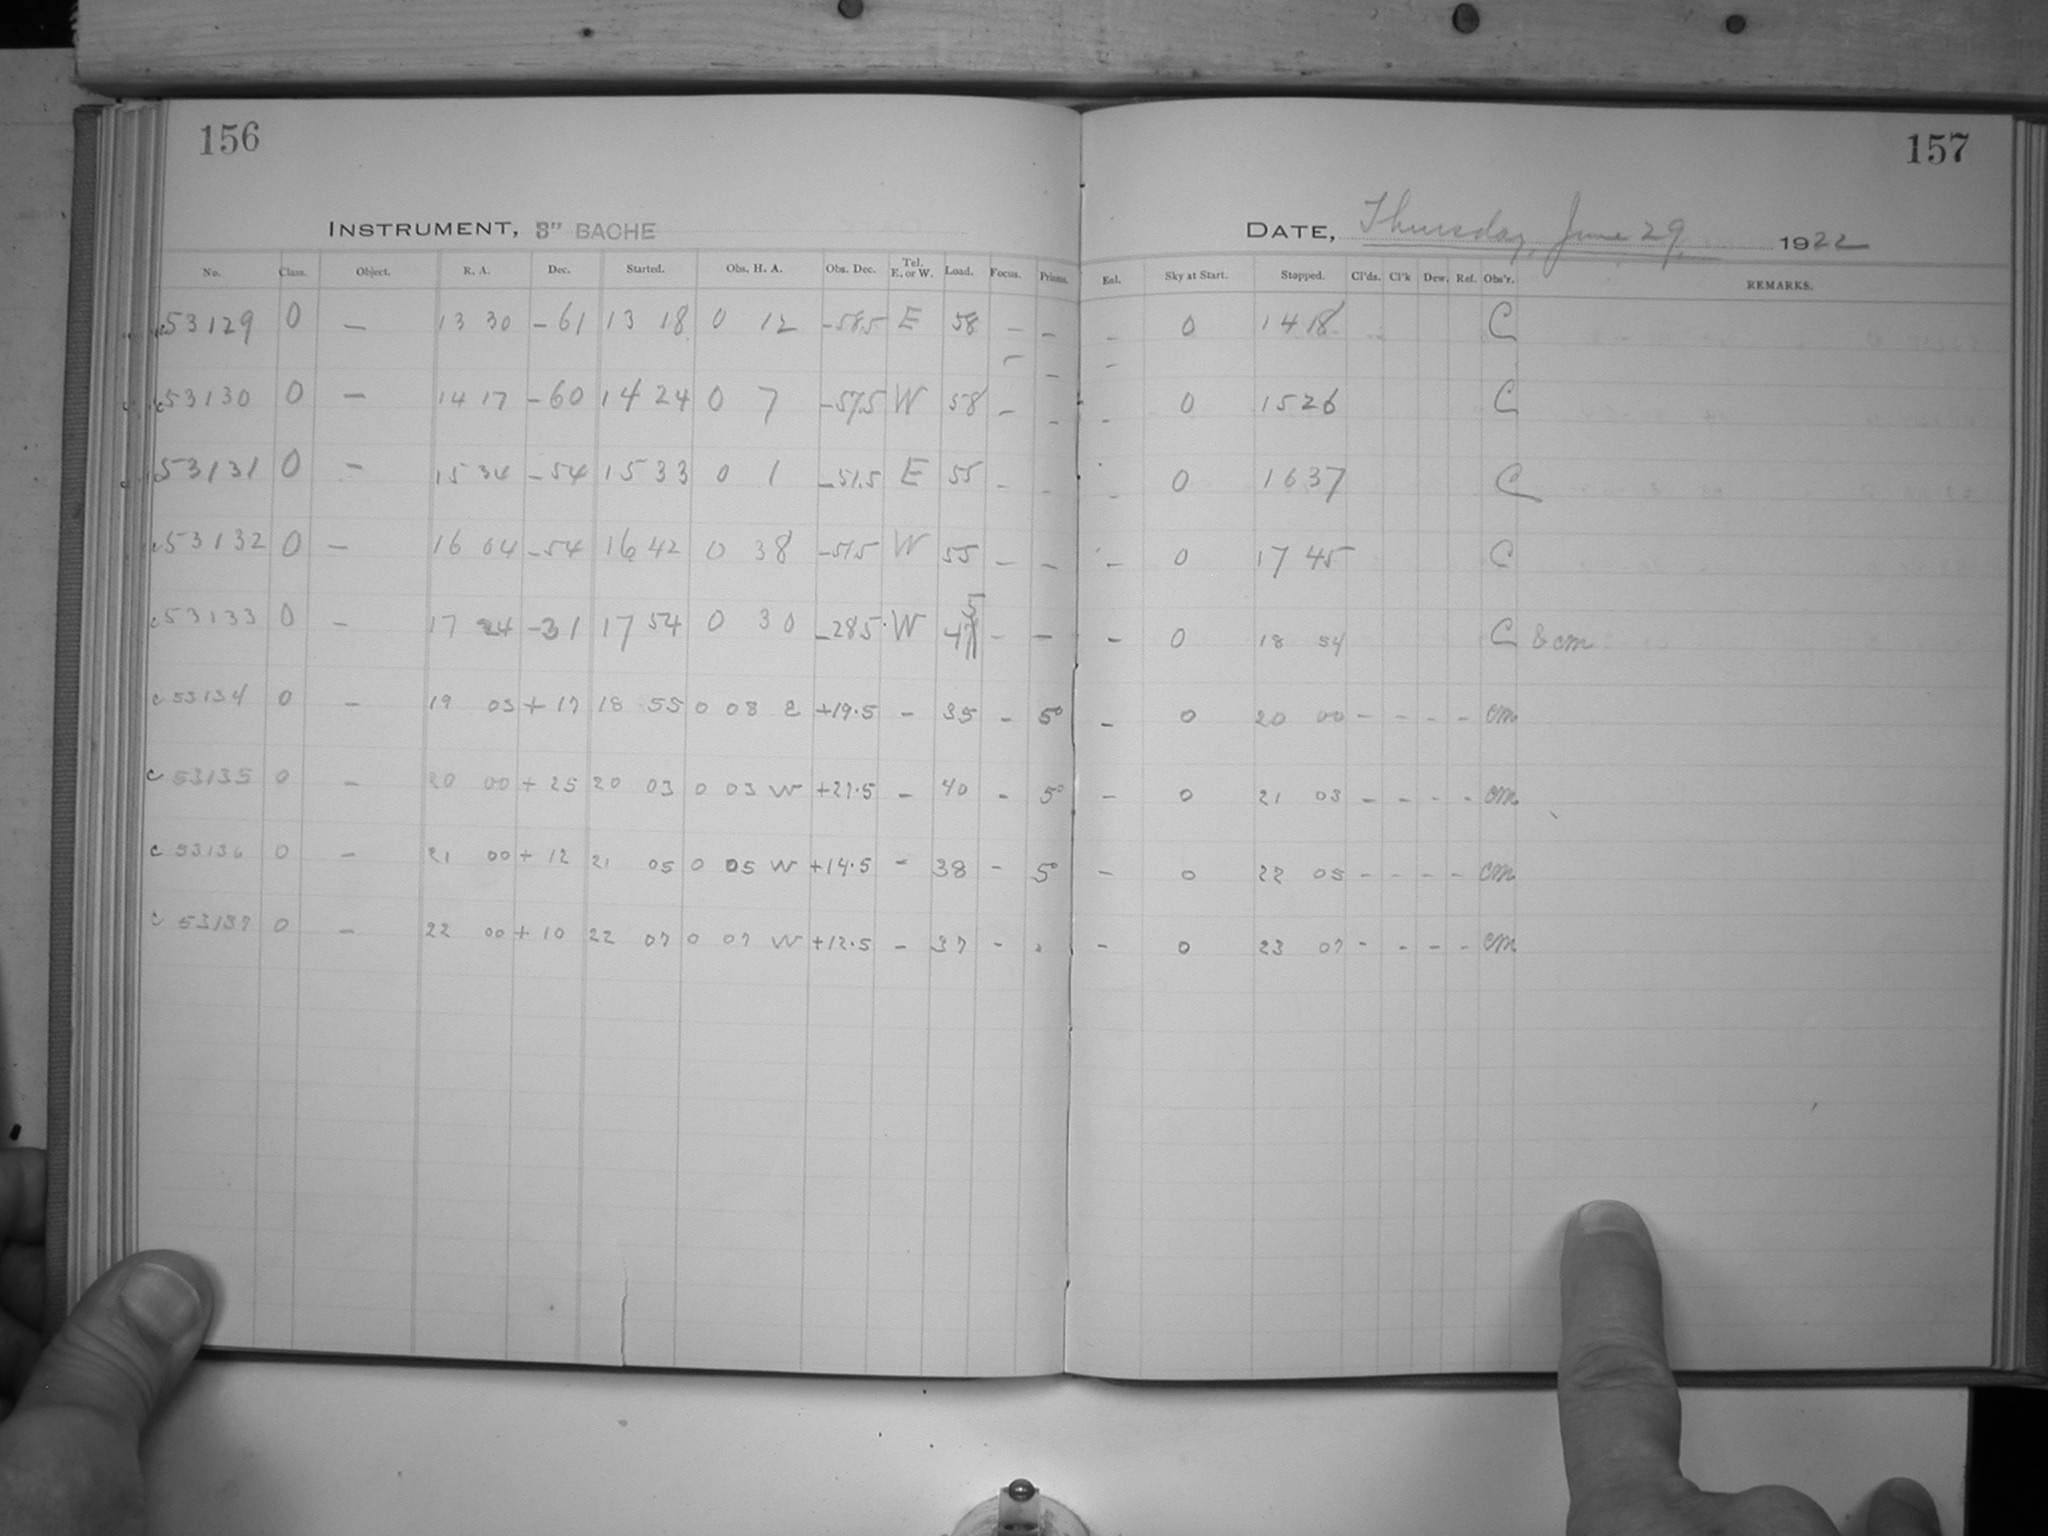 156
INSTRUMENT, 8" BACHE
No. Class. Object. R. A. Dec. Started. Obs. H. A. Obs. Dec. Tel. E. or W. Load. Focus. Prisms.
c53129 0 — 13 30 -61 13 18 0 12 -58.5 E 58 - -
c53130 0 — 14 17 -60 14 24 0 7 -57.5 W 58 - -
c53131 0 - 15 34 -54 15 33 0 1 -51.5 E 55 - -
c53132 0 — 16 04 -54 16 42 0 38 -51.5 W 55 - -
c53133 0 - 17 24 -31 17 54 0 30 -28.5 W - —
c 53134 0 - 19 03 + 17 18 55 0 08 E +19.5 - 35 - 5°
c 53135 0 - 20 00 + 25 20 03 0 03 W +27.5 - 40 - 5°
c 53136 0 - 21 00 + 12 21 05 0 05 W +14.5 - 38 - 5°
c 53137 0 - 22 00 + 10 22 07 0 07 W +12.5 - 37 -
157
DATE, Thursday, June 29, 1922
Enl. Sky at Start. Stopped. Cl'ds. Cl'k Dew. Ref. Obs'r. REMARKS.
- 0 14 18 C
- 0 15 26 C
- 0 16 37 C
- 0 17 45 C
- 0 18 54 C & cm
- 0 20 00 - - - - cm
- 0 21 03 - - - - cm
- 0 22 05 - - - - cm
- 0 23 07 - - - - cm